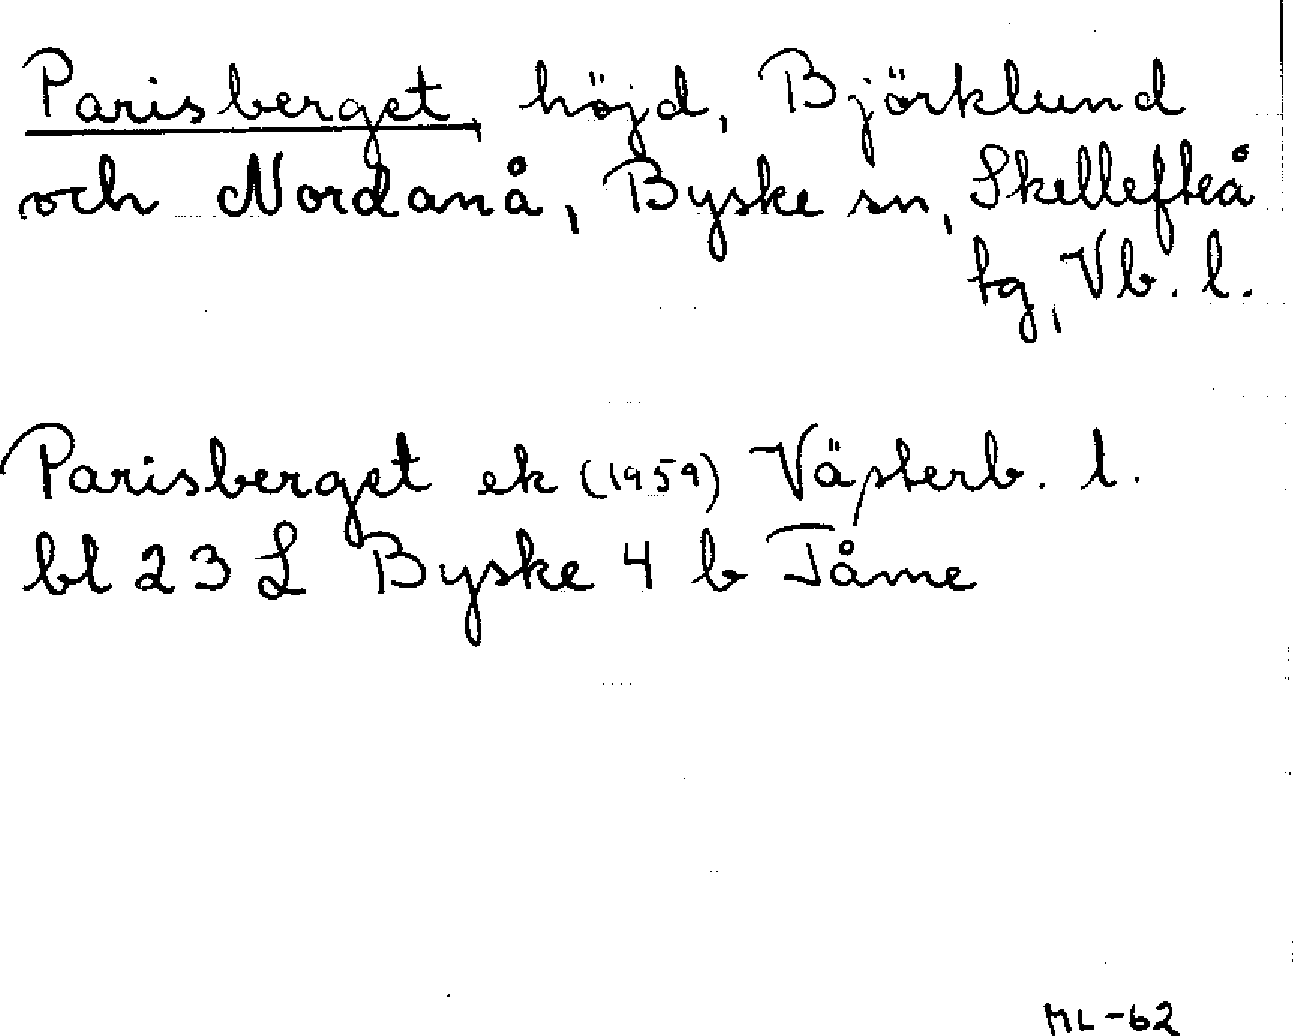 Parisberget, höjd, Björklund
och Nordanå, Byske sn, Skellefteå
tg, Vb. l.
Parisberget ek (1959) Västerb. l.
bl 23 L Byske 4 b Tåme
ML-62